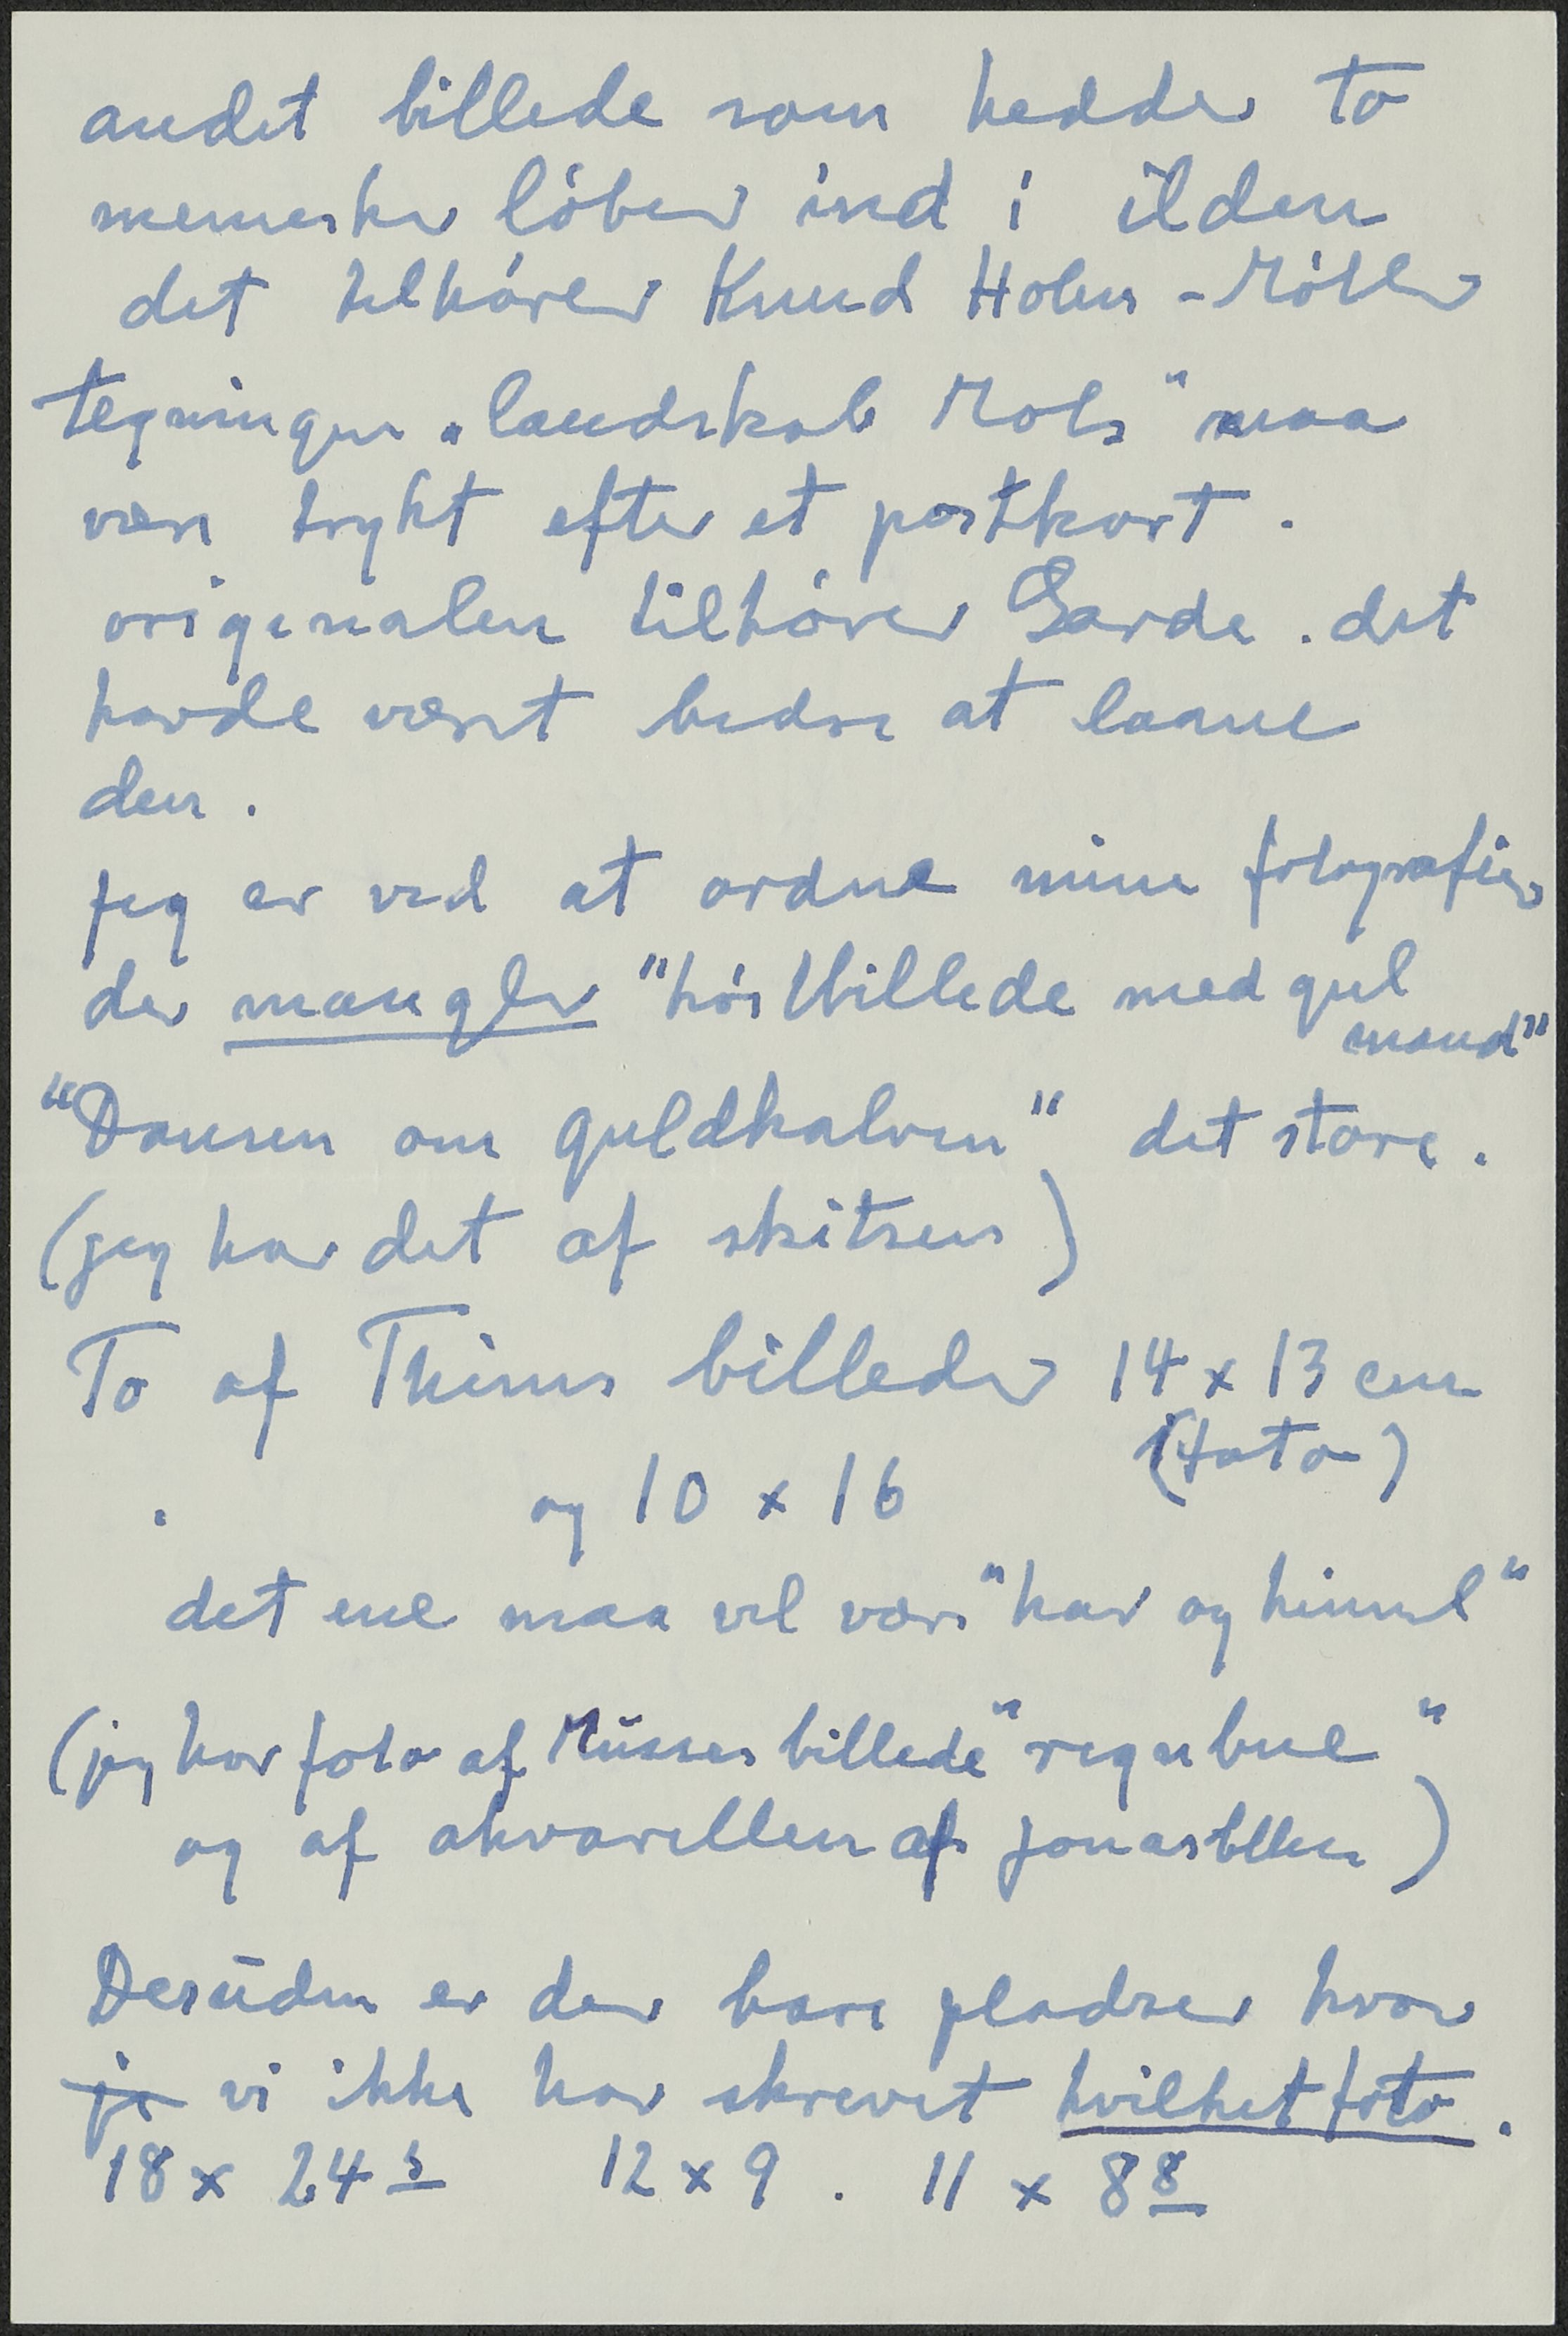 andet billede som hedder to
mennesker löber ind i ilden
det tilhörer Knud Holm-Möller
tegningen "landskab Mols" maa
være trykt efter et postkort.
originalen tilhörer Garde. det
havde været bedre at laane
den.
jeg er ved at ordne mine fotografier
der mangler "höstbillede med gul
mand"
"Dansen om guldkalven" det store.
(jeg har det af skitsen)
To af Thims billeder 14 x 13 cm
(foto)
og 10 x 16
det ene maa vel være "hav og himmel"
(jeg har foto af Müsses billede "regnbue"
og af akvarellen af Jonas)
Desüden er der bare pladser hvor
je vi ikke har skrevet hvilket foto.
18 x 24 5 12 x 9 . 11 x 8 8